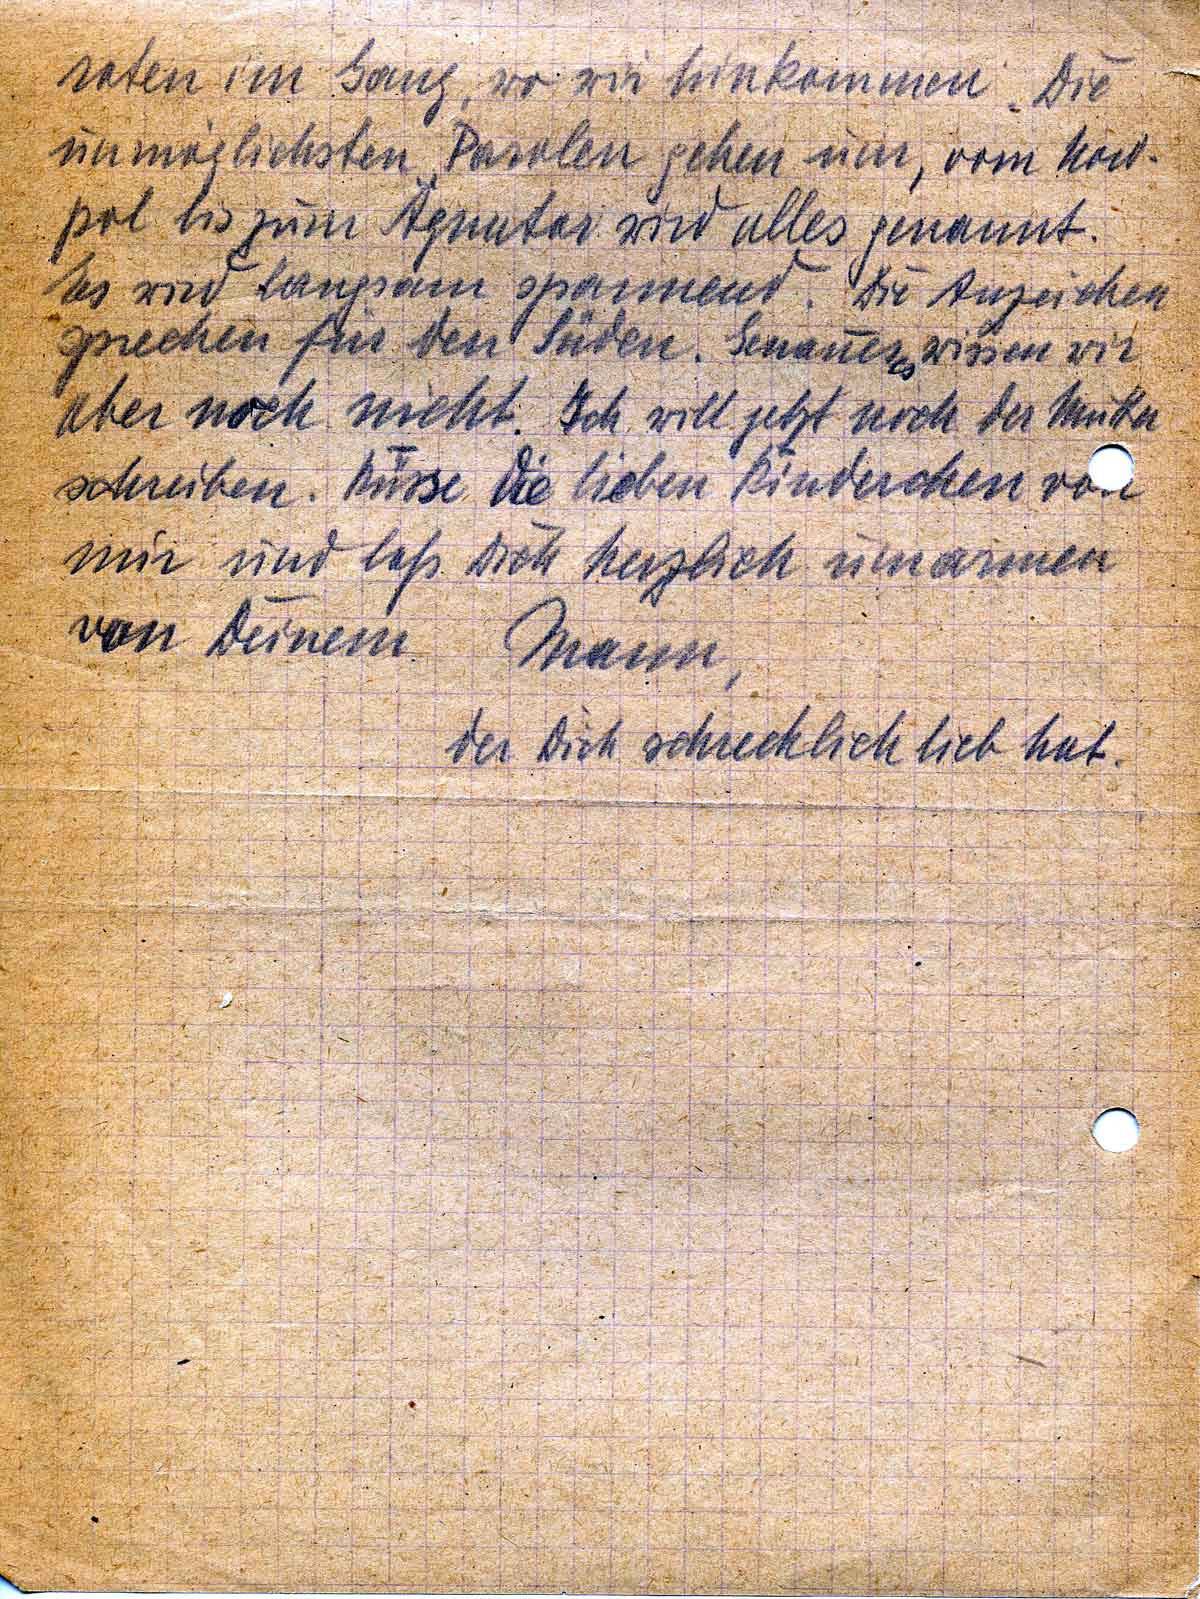 raten im Gang, wo wir hinkommen. Die
unmöglichsten Parolen gehen um, vom Nord-
pol bis zum Äquator wird alles genannt.
Es wird langsam spannend. Die Anzeichen
sprechen für den Süden. Genaueres wissen wir
aber noch nicht. Ich will jetzt noch der Mutter
schreiben. Küsse die lieben Kinderchen von
mir und laß Dich herzlich umarmen
von Deinem Mann,
der Dich schrecklich lieb hat.